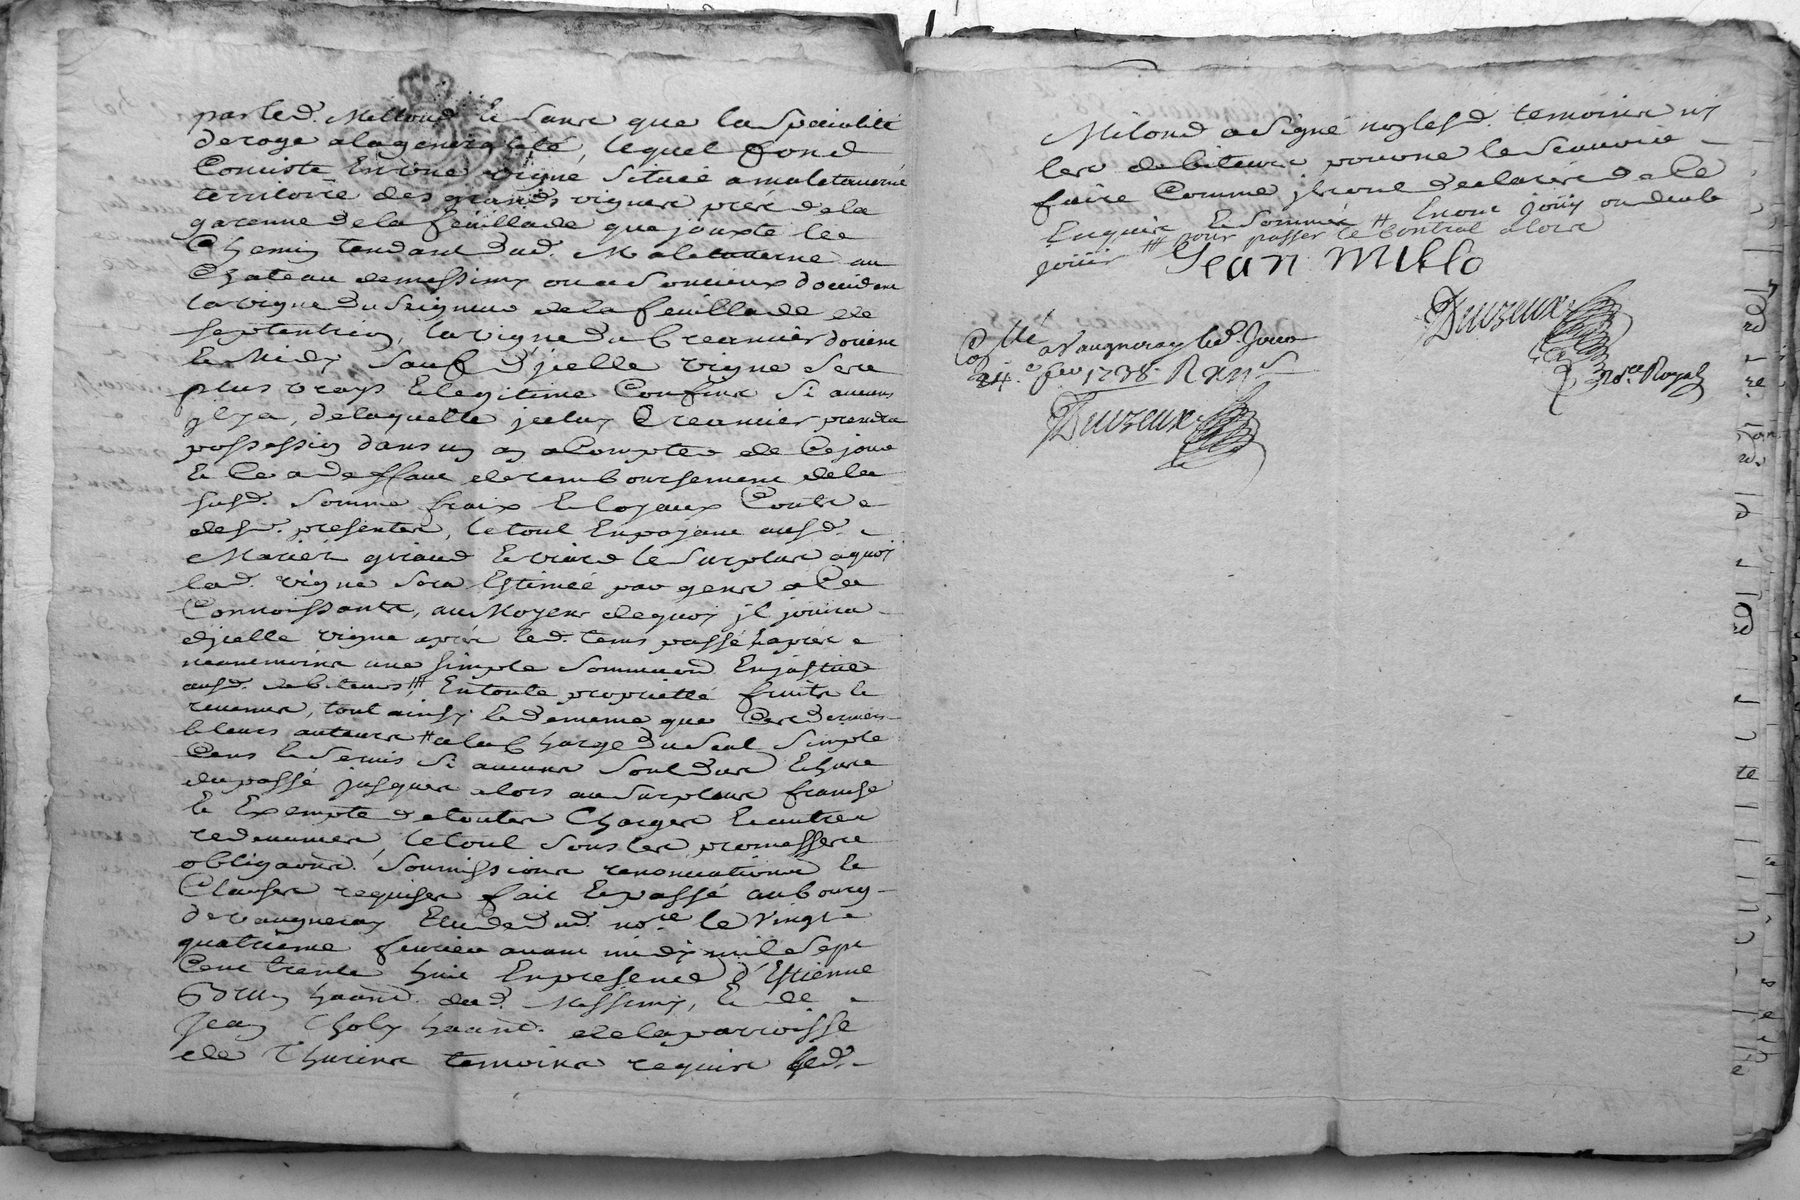 par led. Milloud Et Sans que la Specialité
deroge a la generalité, lequel fond
Consiste En une vigne Située a malataverne
territoire des grands vignes pres de la
garenne de la feuillade que jouxte le
Chemin tendant dud. Malataverne au
Chateau de messimy
la vigne du Seigneur de la feuillade de
septentrion, la vigne du Creancier d'orient
Et Midy Sauf d'jcelle vigne Ses
plus vrays Et legitime Confins Si aucuns
jl y a, de laquelle jceluy Creancier prendra
possession dans un an a Compter de Ce jour
Et Ce a deffaut de remboursement de la
susd. Somme fraix Et loyaux Couts
des presentes, le tout En payant ausd.
Mariés giraud Et le Surplus a quoy
lad. vigne Sera Estimée par gens a Ce
Connoissants, au Moyens de quoy jl jouira
d'jcelle vigne après led. tems passé Et après
neanmoins une simple Sommation En justice
ausd. debiteurs # En toute proprietté fruits Et
revenus, tout ainsy Et de meme que Ces derniers
Et leurs auteurs # a la Charge du Seul Simple
Cens Et Servis Si aucuns Sont Dus Et hors
du passé jusques alors au Surplus franche
Et Exempte de toutes Charges Et autres
redevances, le tout Sous les promesses
obligaons. Soumissions renonciations Et
Clauses requises fait Et passé au bourg
de vaugneray Etude dud. nore. le vingt
quatrieme fevrier avant midy mil Sept
Cent trente huit En presence d'Estienne
habit. dud. Messimy, Et de
Jean Tholy habit. de la parroisse
de Thurins temoins requis led.
Milond a Signé non lesd. temoins ny
les debiteurs pour ne le Scavoir
faire Comme jls ont declaré de Ce
Enquis Et Sommés # En ont jouy ou deub
jouir # pour passer le Contrat alors
Jean Millo
Deuzeux
Nore. Royal
Contllé a Vaugneray led. Jour
24.e fev 1738. R
Deuzeux